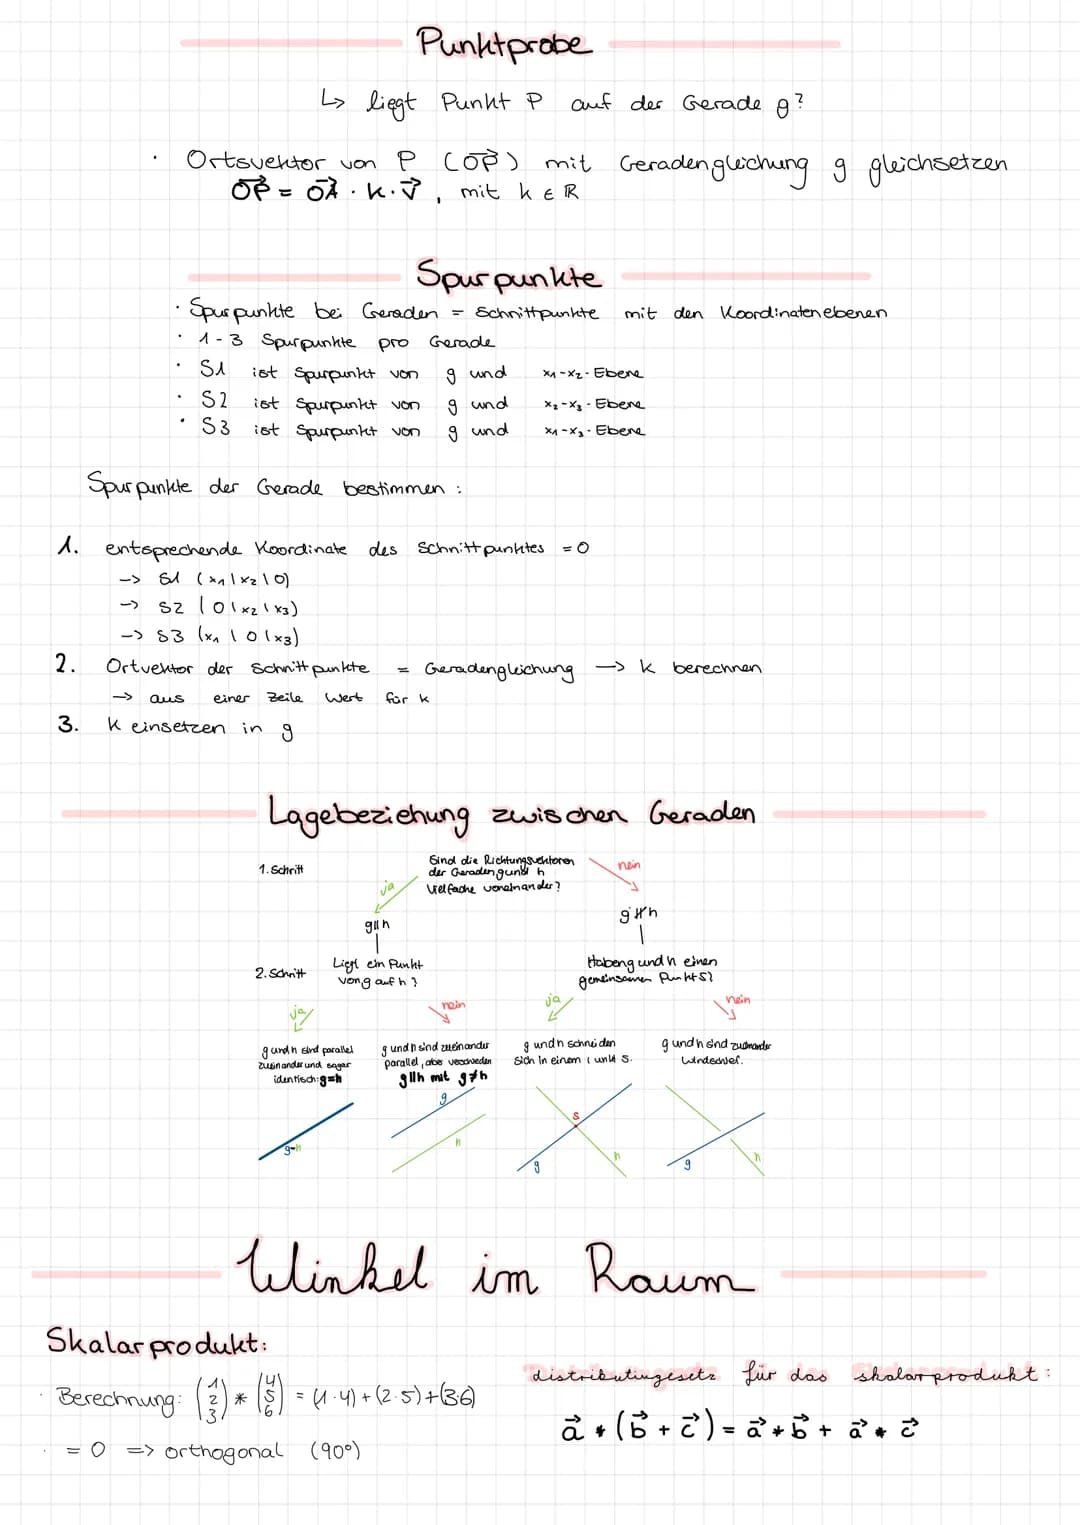 Punktprobe
↳ liegt Punkt P auf der Gerade g?
· Ortsvektor von P (O⃗P) mit Geradengleichung g gleichsetzen
O⃗P = O⃗A · k · v⃗, mit k ∈ ℝ
Spurpunkte
· Spurpunkte bei Geraden = Schnittpunkte mit den Koordinatenebenen
· 1-3 Spurpunkte pro Gerade
· S1 ist Spurpunkt von g und x₁-x₂-Ebene
· S2 ist Spurpunkt von g und x₂-x₃-Ebene
· S3 ist Spurpunkt von g und x₁-x₃-Ebene
Spurpunkte der Gerade bestimmen:
1. entsprechende Koordinate des Schnittpunktes = 0
-> S1 (x₁|x₂|0)
-> S2 (0|x₂|x₃)
-> S3 (x₁|0|x₃)
2. Ortvektor der Schnittpunkte = Geradengleichung -> k berechnen
-> aus einer Zeile Wert für k
3. k einsetzen in g
Lagebeziehung zwischen Geraden
1. Schritt
Sind die Richtungsvektoren
der Geraden g und h
Vielfache voneinander?
ja
nein
g∥h
g∦h
2. Schritt
Liegt ein Punkt
von g auf h?
Haben g und h einen
gemeinsamen Punkt S?
ja
nein
ja
nein
g und h sind parallel
zueinander und sogar
identisch: g=h
g und h sind zueinander
parallel, aber verschieden
g∥h mit g≠h
g und h schneiden
sich in einem Punkt S.
g und h sind zueinander
windschief.
g=h
g
h
S
g
h
g
h
Winkel im Raum
Skalarprodukt:
· Berechnung: (1 2 3) * (4 5 6) = (1·4)+(2·5)+(3·6)
· = 0 => orthogonal (90°)
Distributingesetz für das Skalarprodukt:
a⃗ * (b⃗ + c⃗) = a⃗ * b⃗ + a⃗ * c⃗